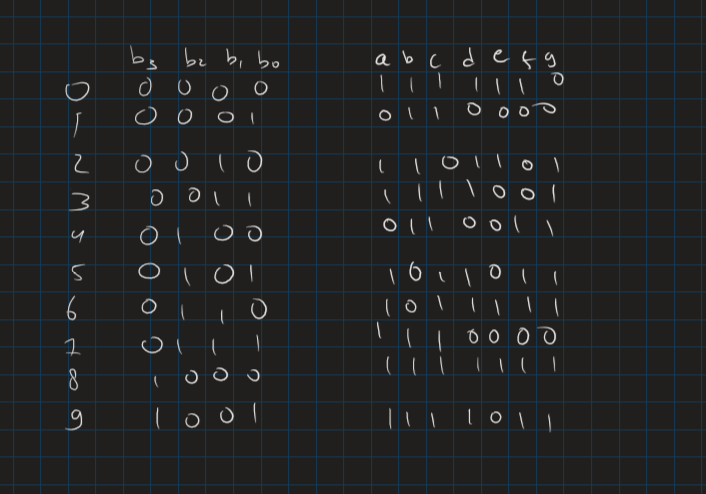 b₃ b₂ b₁ b₀ a b c d e f g
0 0 0 0 0 1 1 1 1 1 1 0
1 0 0 0 1 0 1 1 0 0 0 0
2 0 0 1 0 1 1 0 1 1 0 1
3 0 0 1 1 1 1 1 1 0 0 1
4 0 1 0 0 0 1 1 0 0 1 1
5 0 1 0 1 1 0 1 1 0 1 1
6 0 1 1 0 1 0 1 1 1 1 1
7 0 1 1 1 1 1 1 0 0 0 0
8 1 0 0 0 1 1 1 1 1 1 1
9 1 0 0 1 1 1 1 1 0 1 1